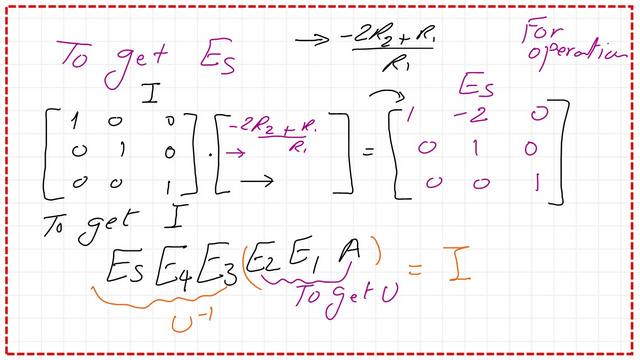 To get E5 → -2R2 + R1 / R1 For operation
I E5
[1 0 0 [-2R2 + R1 / R1 [1 -2 0
0 1 0 · → = 0 1 0
0 0 1] →] 0 0 1]
To get I
E5 E4 E3 (E2 E1 A) = I
U⁻¹ To get U